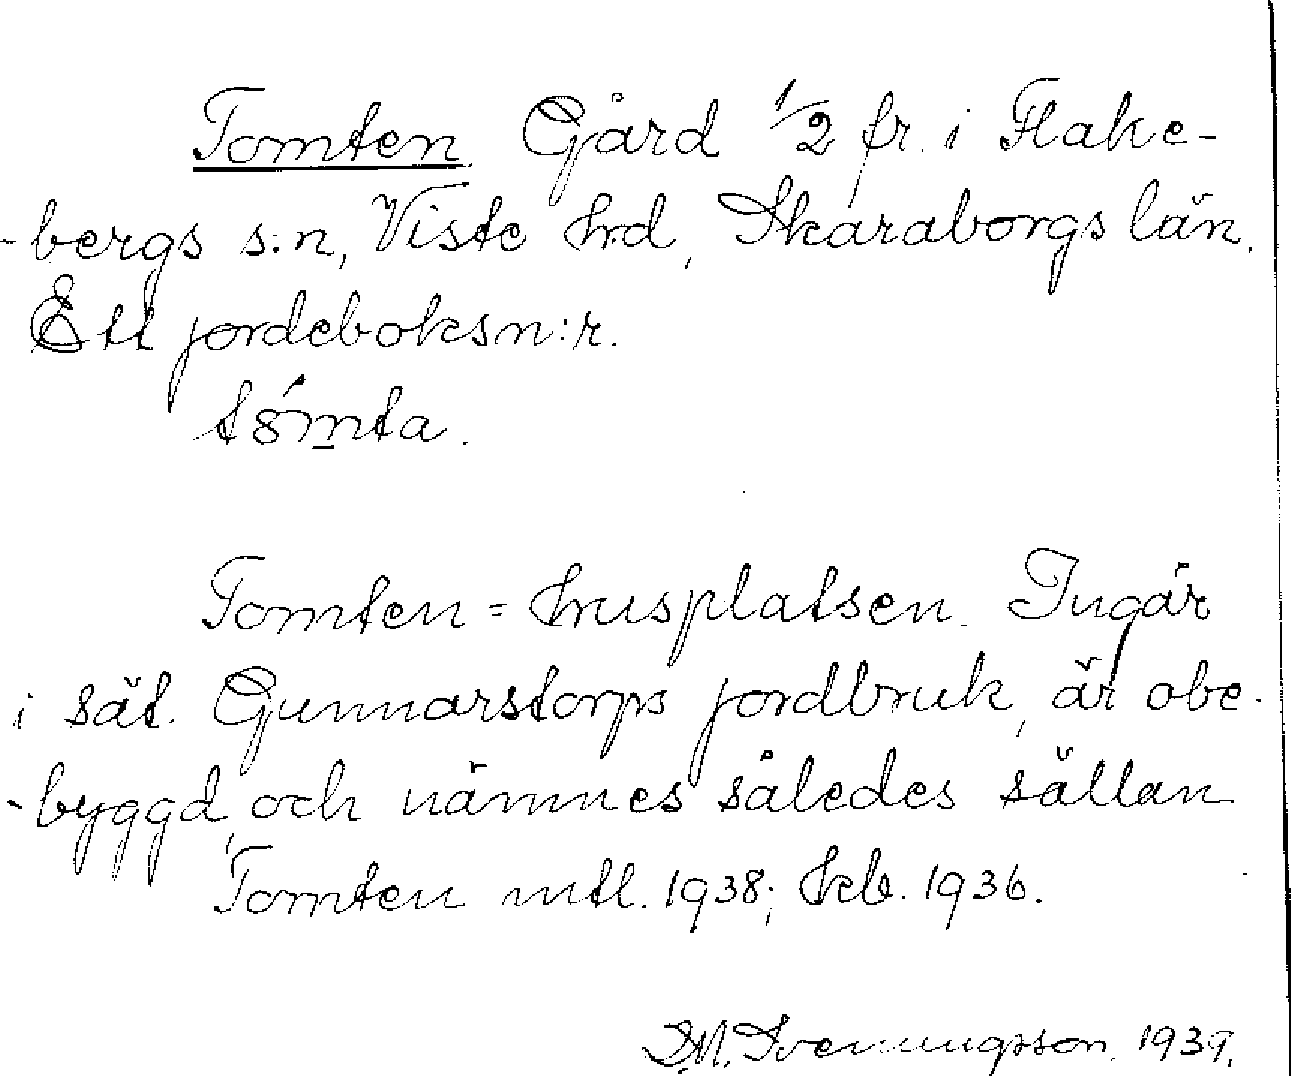 Tomten. Gård 1/2 fr. i Flake-
-bergs s:n, Viste hrd, Skaraborgs län.
Ett jordeboksn:r.
tómta.
Tomten = husplatsen. Ingår
i sät. Gunnarstorps jordbruk, är obe-
-byggd, och nämnes således sällan
Tomten mtl. 1938; hfb. 1936.
D.N. Svenningsson. 1939.